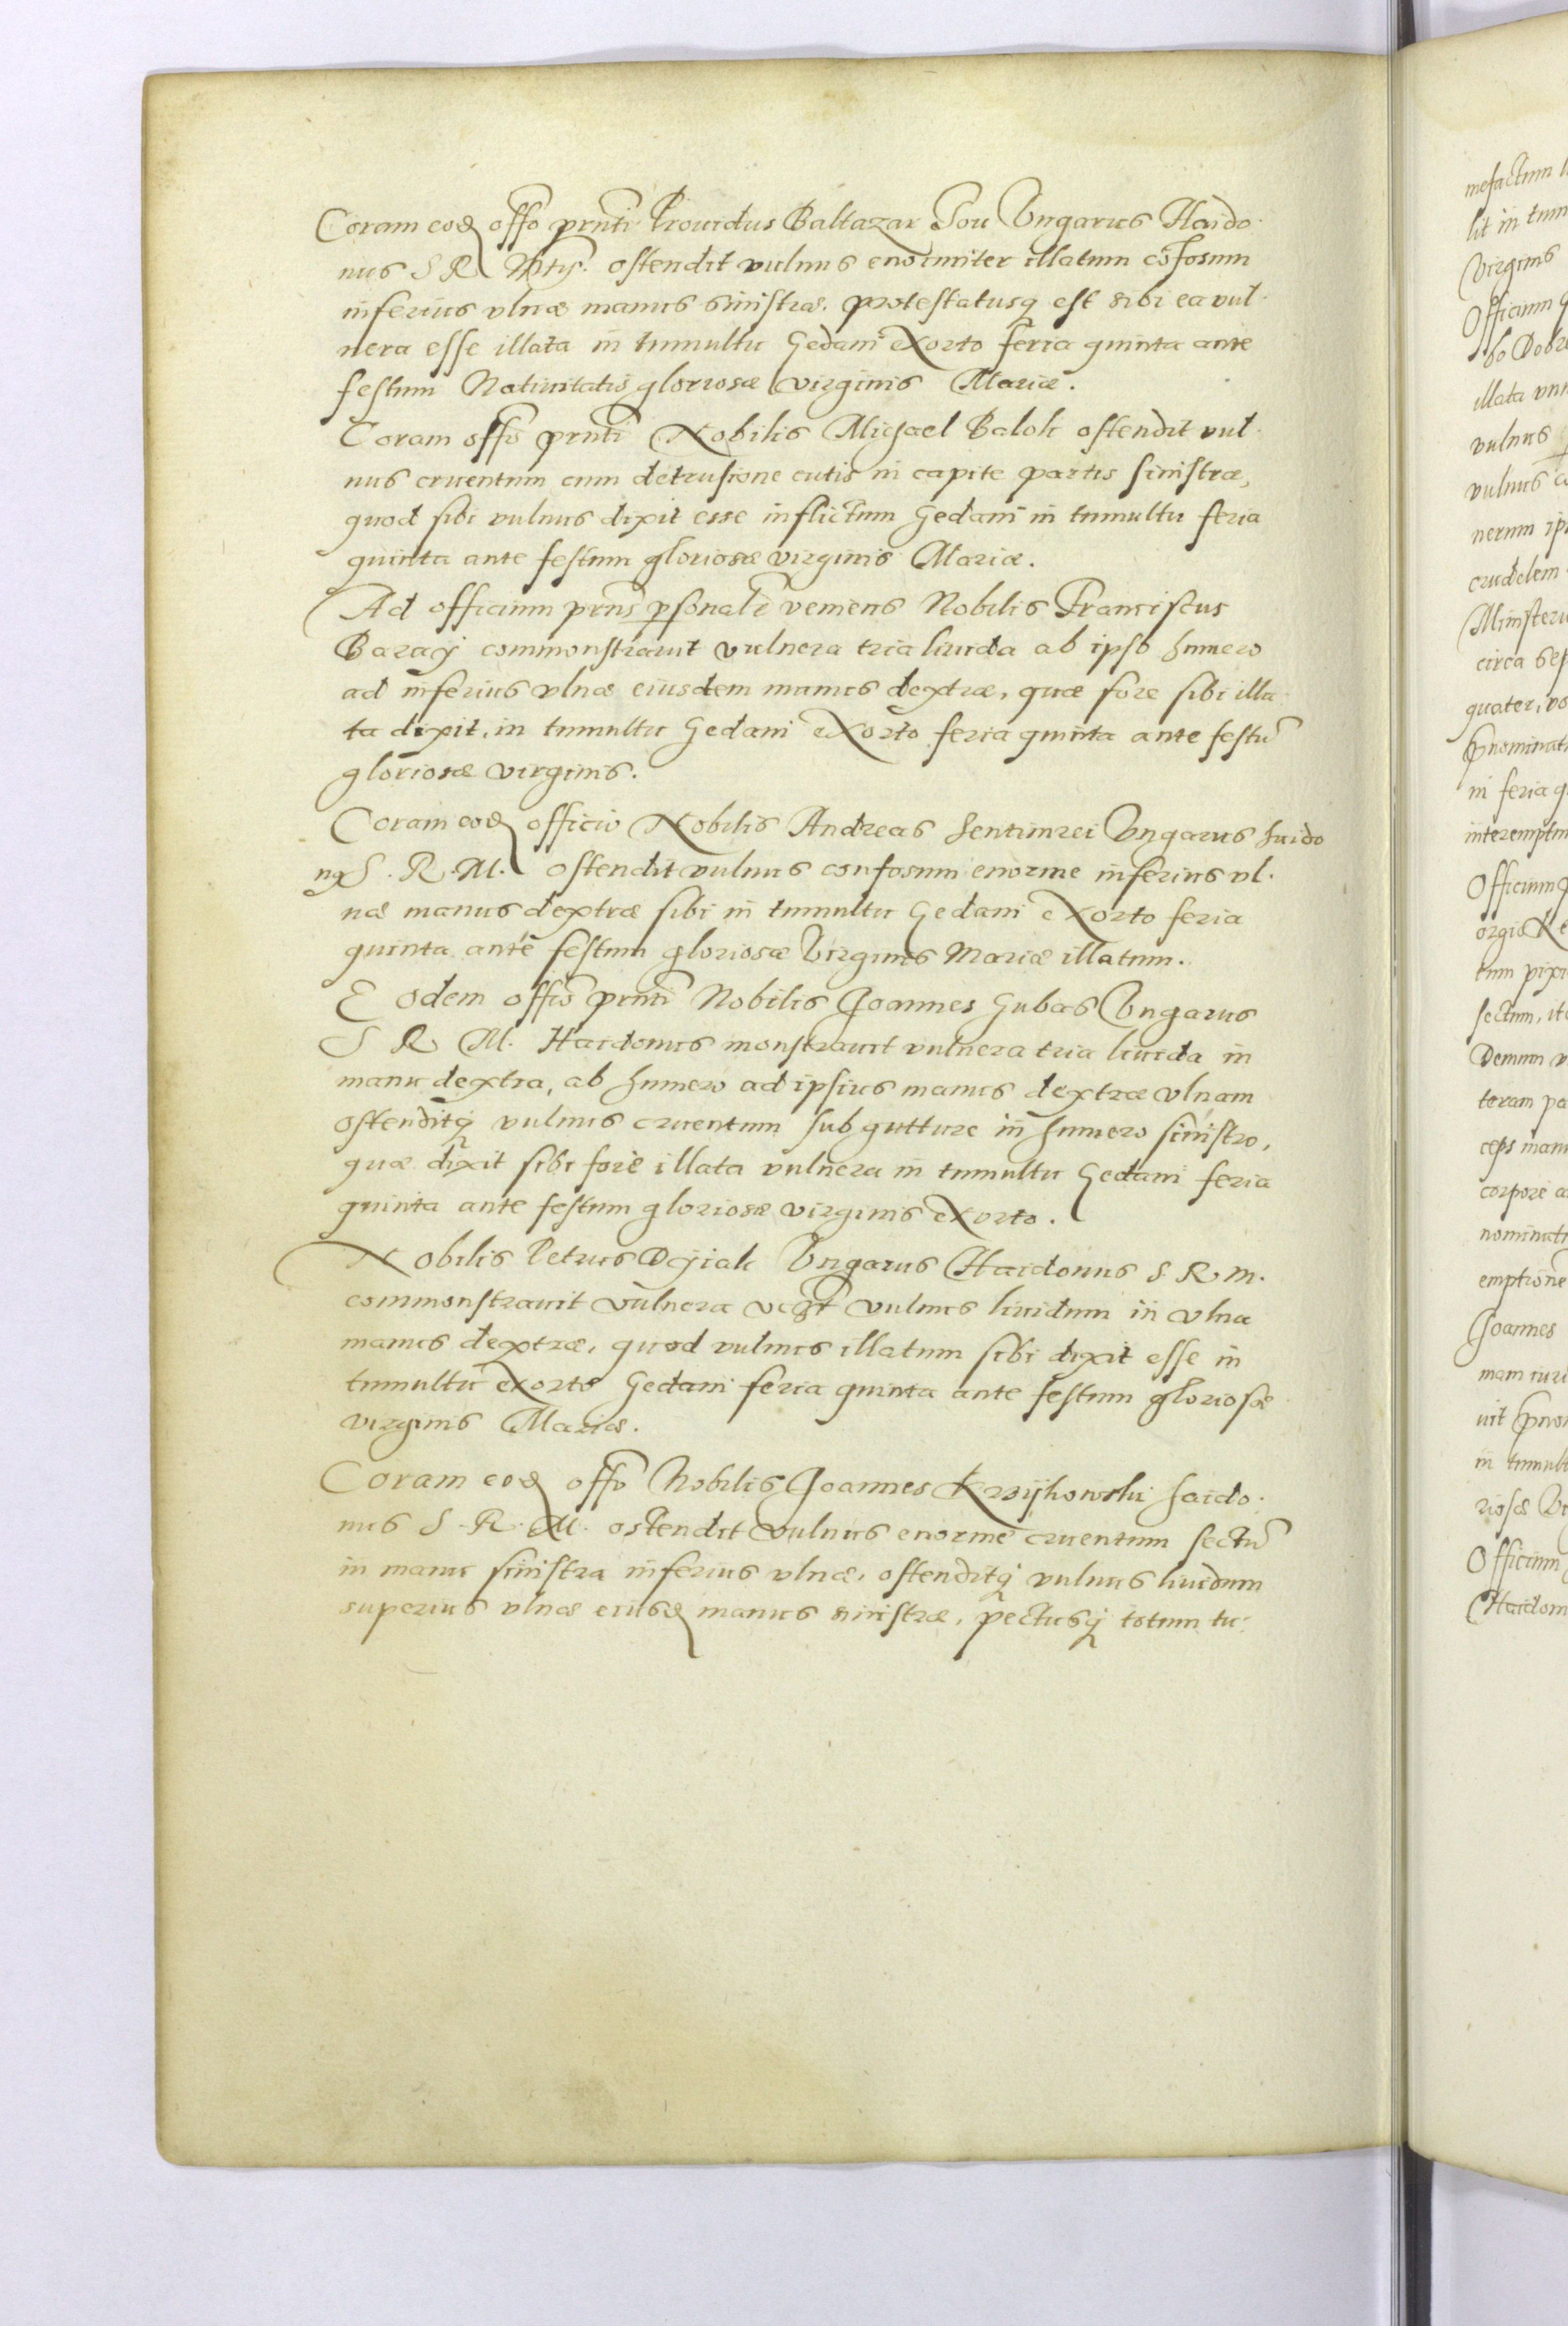 Coram eod offo prnti Prouidus Baltazar Sou Vngarus Haido
nus S R Mtis. ostendit vulnus enormiter illatum cōfosum
inferius vlnæ manus sinistræ. protestatusq est sibi ea vul
nera esse illata in tumultu Gedani exorto feria quinta ante
festum Natiuitatis gloriosæ virginis Mariæ.
Coram offo prnti Nobilis Michael Balok ostendit vul
nus cruentum cum detrusione cutis in capite partis sinistræ,
quod sibi vulnus dixit esse inflictum Gedani in tumultu feria
quinta ante festum gloriosæ virginis Mariæ.
Ad officium prns psonalr veniens Nobilis Franciscus
Baragi commonstrauit vulnera tria liuida ab ipso humero
ad inferius vlnæ eiusdem manus dextræ, quæ fore sibi illa
ta dixit, in tumultu Gedani exorto feria quinta ante festū
gloriosæ virginis.
Coram eod officio Nobilis Andreas Sentimrei Vngarus haido
ng S. R. M. ostendit vulnus confosum enorme inferius vl.
næ manus dextræ sibi in tumultu Gedani exorto feria
quinta ante festum gloriosæ Virginis Mariæ illatum.
Eodem offio prnti Nobilis Joannes Gubas Vngarus
S R M. Haidonus monstrauit vulnera tria liuida in
manu dextra, ab humero ad ipsius manus dextræ vlnam
ostenditq vulnus cruentum sub gutture in humero sinistro,
quæ dixit sibi fore illata vulnera in tumultu Gedani feria
quinta ante festum gloriosæ virginis exorto.
Nobilis Petrus Dijak Vngarus Haidonus S R M.
commonstrauit vulnera vulnus liuidum in vlna
manus dextræ, quod vulnus illatum sibi dixit esse in
tumultu exorto Gedani feria quinta ante festum gloriosæ
virginis Mariæ.
Coram eod offo Nobilis Joannes Krzijkowski haido.
nus S. R. M. ostendit vulnus enorme cruentum sectū
in manu sinistra inferius vlnæ, ostenditq vulnus liuidum
superius vlnæ eiusd manus sinistræ, pectusq totum tu
mefactum
lit in tum
Virginis
Officium
illata
vulnus
vulnus
nerum
crudelem
Ministeri
circa
quater,
in feria
interemptu
Officium
sectum,
Demum
teram
ceps manu
corpore
nominat
emptione
Joannes
mam
uit
in tumult
riosæ
Officium
Haidon